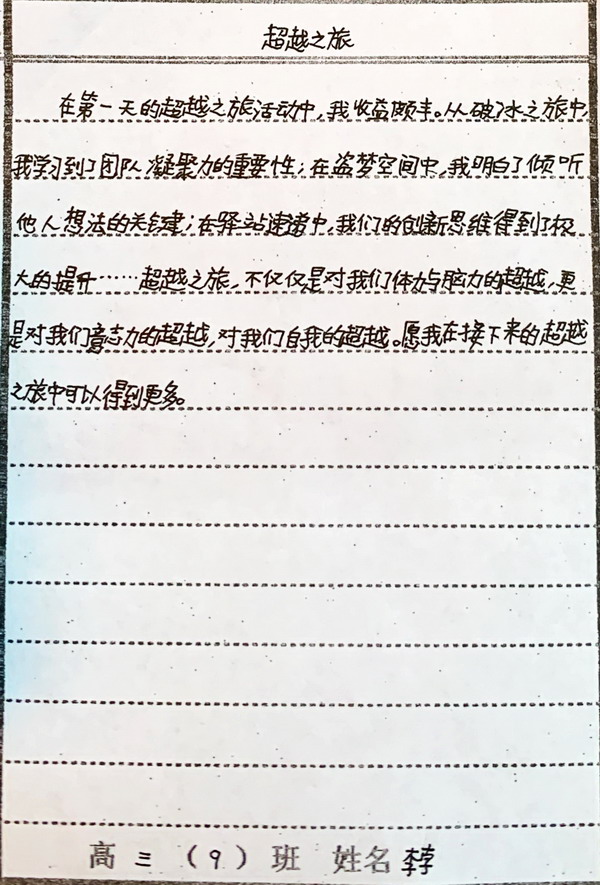 超越之旅
在第一天的超越之旅活动中,我收益颇丰。从破冰之旅中,
我学习到了团队凝聚力的重要性;在盗梦空间中,我明白了倾听
他人想法的关键;在驿站速递中,我们的创新思维得到了极
大的提升……超越之旅,不仅仅是对我们体力与脑力的超越,更
是对我们意志力的超越,对我们自我的超越。愿我在接下来的超越
之旅中可以得到更多。
高三(9)班 姓名 李